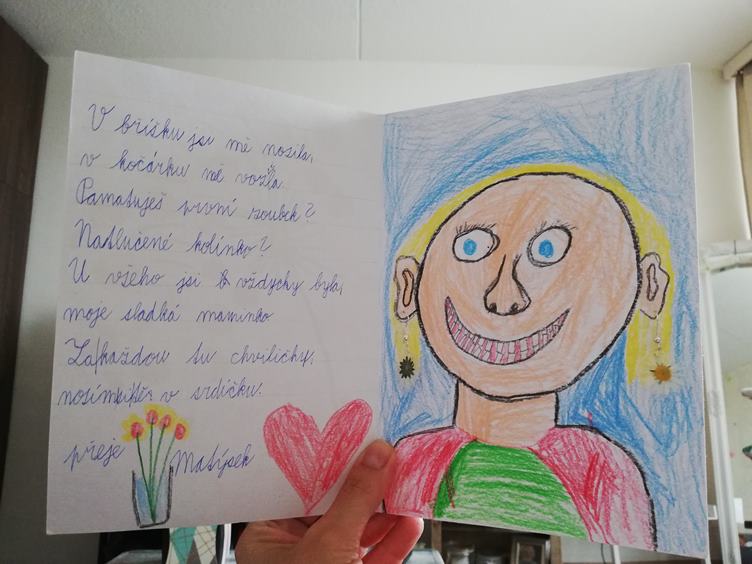 V bříšku jsi mě nosila,
v kočárku mě vozila.
Pamatuješ první zoubek?
Natlučené kolínko?
U všeho jsi vždycky byla,
moje sladká maminko
Za každou tu chviličky,
nosím v srdíčku.
přeje Matýsek